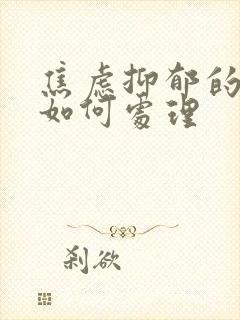 焦虑抑郁的
如何处理
刹欲